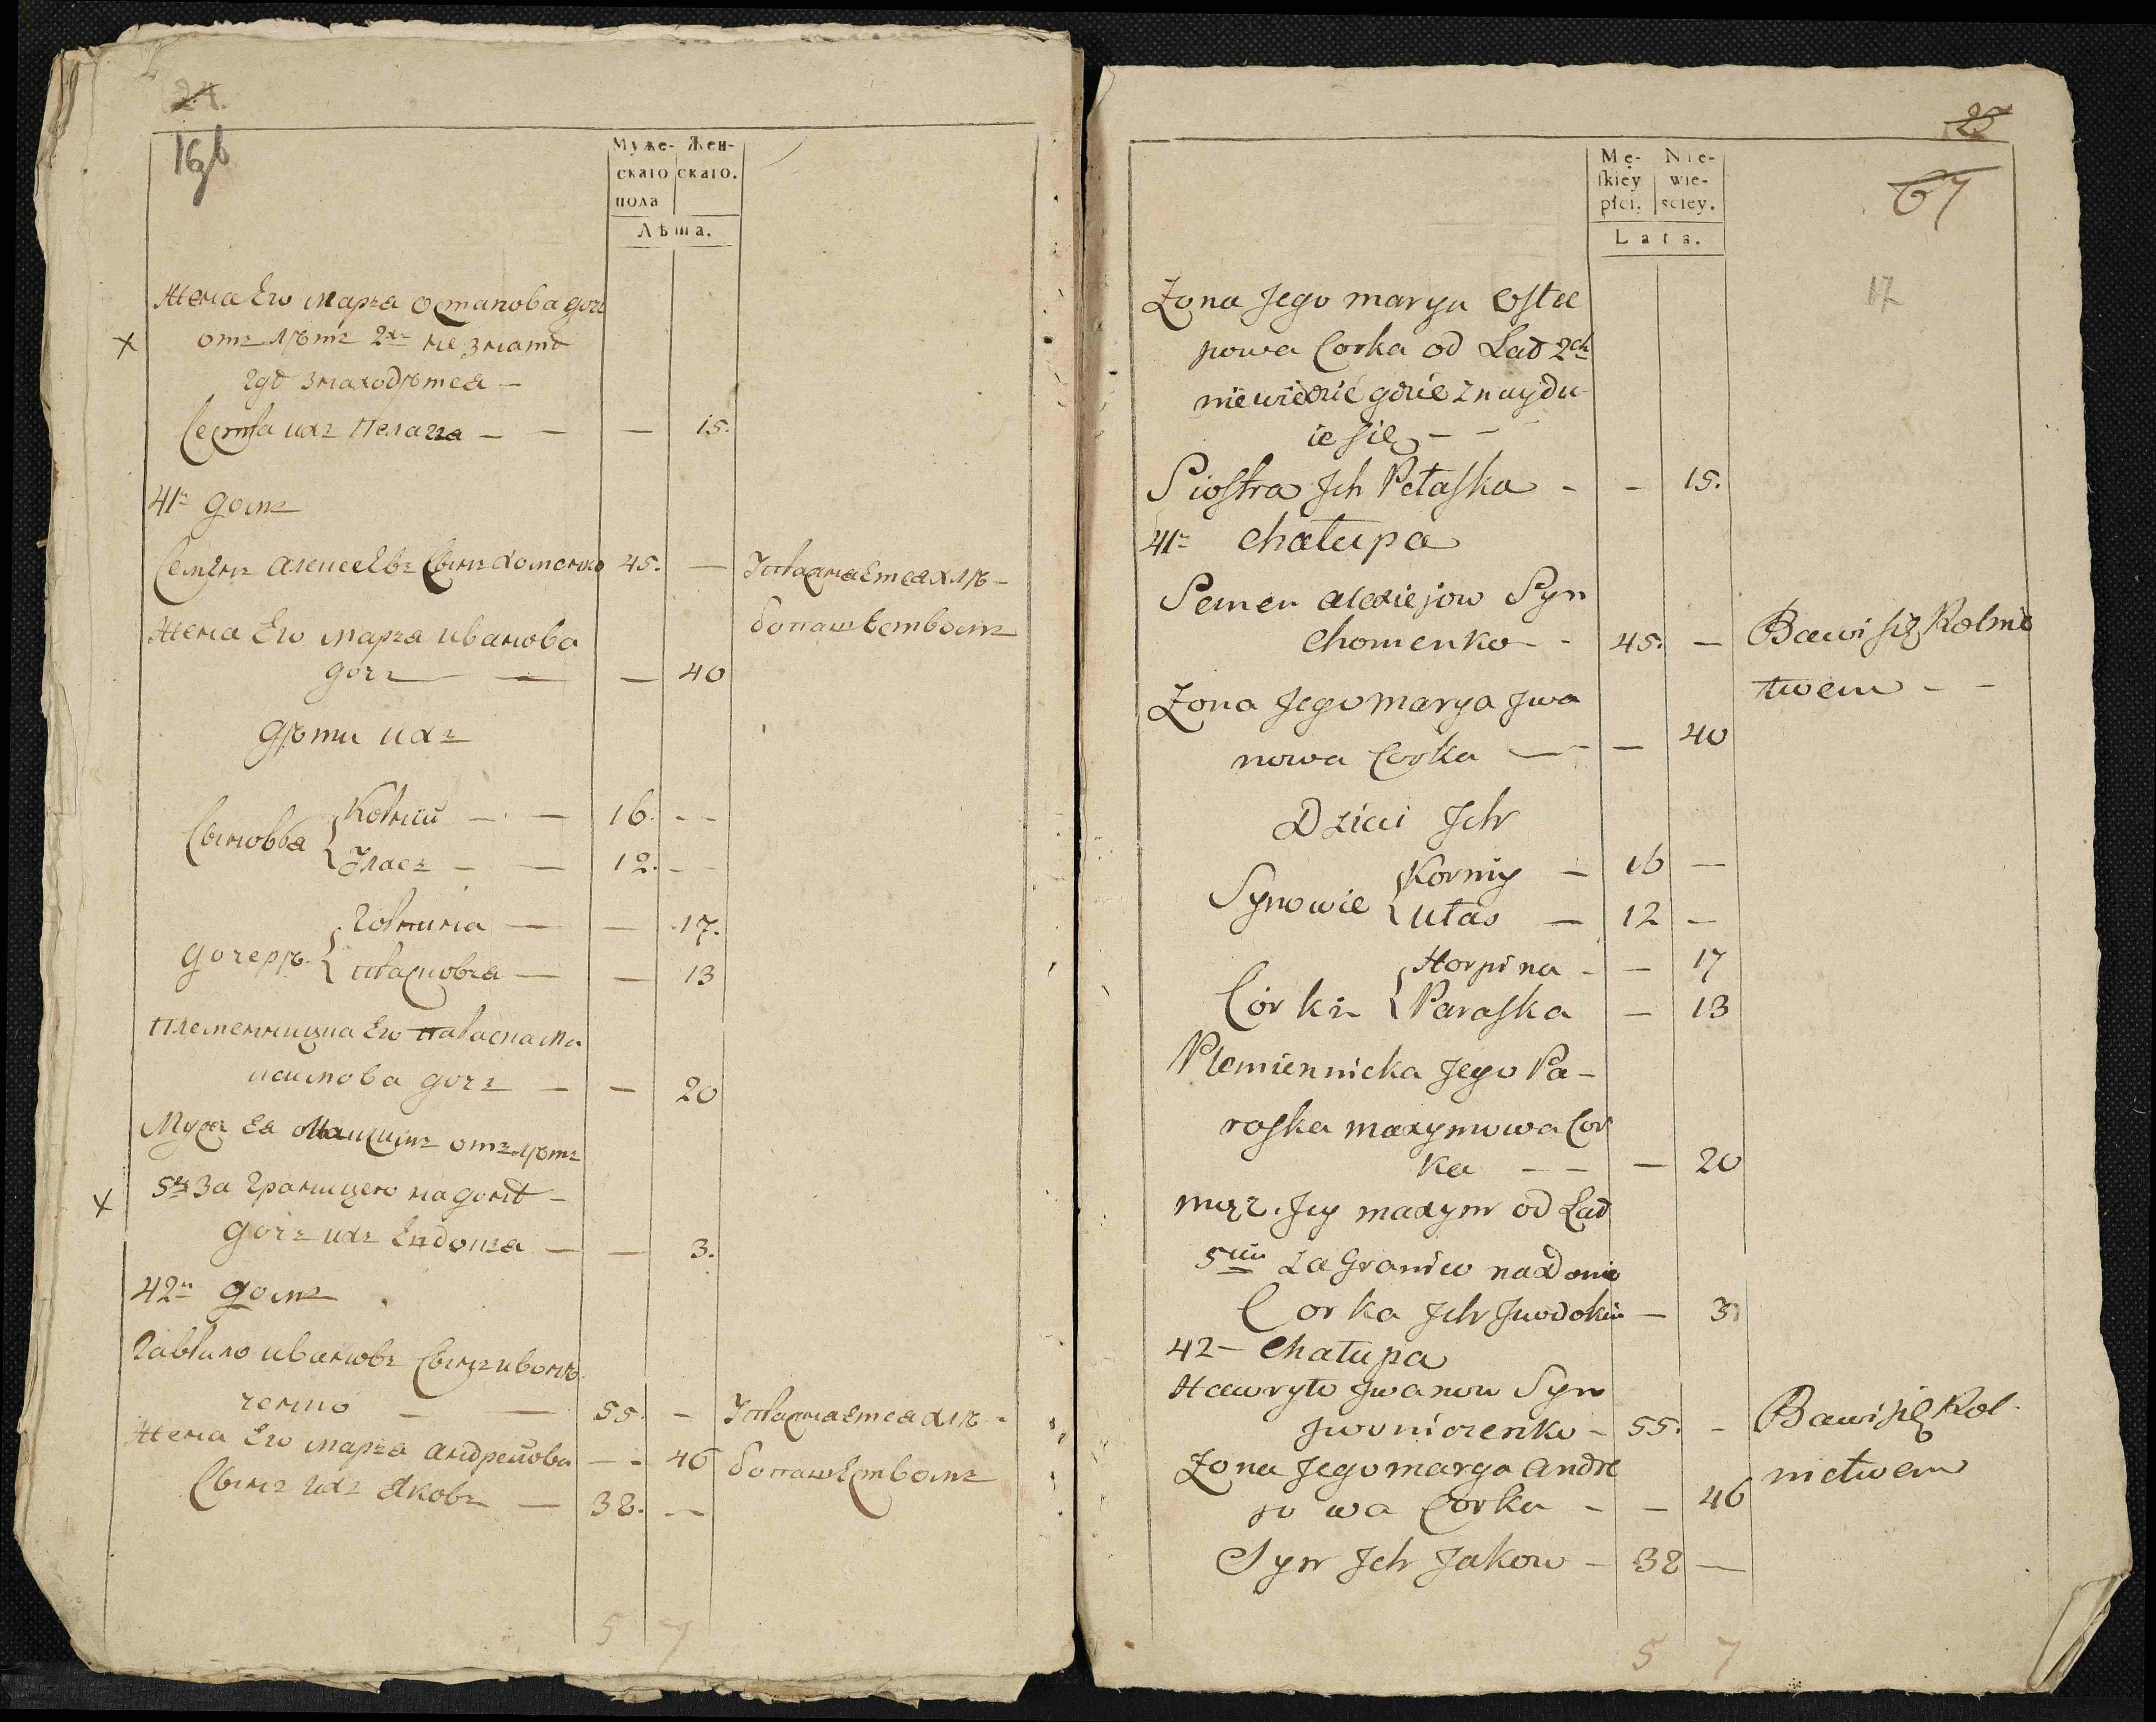 24.
16b
Муже- Жен-
скаго скаго.
пола
Лѣта.
Жена Его Марѣя Остапова дочь
отъ лѣтъ 2хъ не знать
гдѣ знаходѣтся —
Сестра ихъ Пелагея — — — 15.
41й домъ
Семенъ Алексеевъ Сынъ Хоменко 45. — Упражняется хлѣ-
бопашествомъ
Жена Его Маря Иванова
дочь — — — 40
дѣти ихъ
Сыновья { Корнїй — — 16. - -
Улась — — 12. - -
дочерѣ { Горпина — — 17.
Парасковѣя — — 13
Племенница Его Параска Ма
ксимова дочь — — 20
Мужъ Ея Максимъ отъ лѣтъ
5ти За Границею на донѣ —
дочь ихъ Евдокия — — 3.
42й домъ
Гаврило Ивановъ Сынъ Ивонѣ
ченко — — 55. - Упражняется хлѣ-
Жена Его Маря Андреова — - 46 бопашествомъ
Сынъ ихъ Яковъ — 38. —
5 7
25
67
17
Mę- Nie-
ſkiey wie-
płci. sciey.
Lata.
Żona Jego marya Osta
powa Corka od Lat 2ch
niewiedzić gdzie znaydu
ie się - - -
Siostra Jch Pełaska - - 15.
41- Chałupa
Semen Alexiejow Syn
Chomenko - - 45. — Bawi się Rolnic
twem - -
Żona Jego marya Jwa
nowa Corka — - — 40
Dzieci Jch
Synowie { Korniy — 16 —
Ułas — 12 —
Córki { Horpina - — 17
Paraska — 13
Plemiennicka Jego Pa-
raska maxymowa Cor
ka - - — 20
mąż Jey maxym od Lat
5ciu za Granicą na donie
Corka Jch Jwdokia — 3
42 — Chałupa
Hawryło Jwanow Syn
Jwoniczenko - 55. - Bawi się Rol-
nictwem
Żona Jego marya Andre
jowa Corka - - 46
Syn Jch Jakow - 38 —
5 7